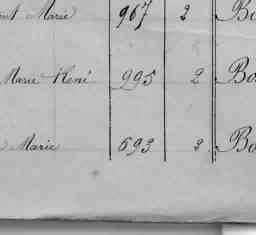 Marie 967 2 Bo
Marie René 995 2 Bo
Marie 693 2 Bo